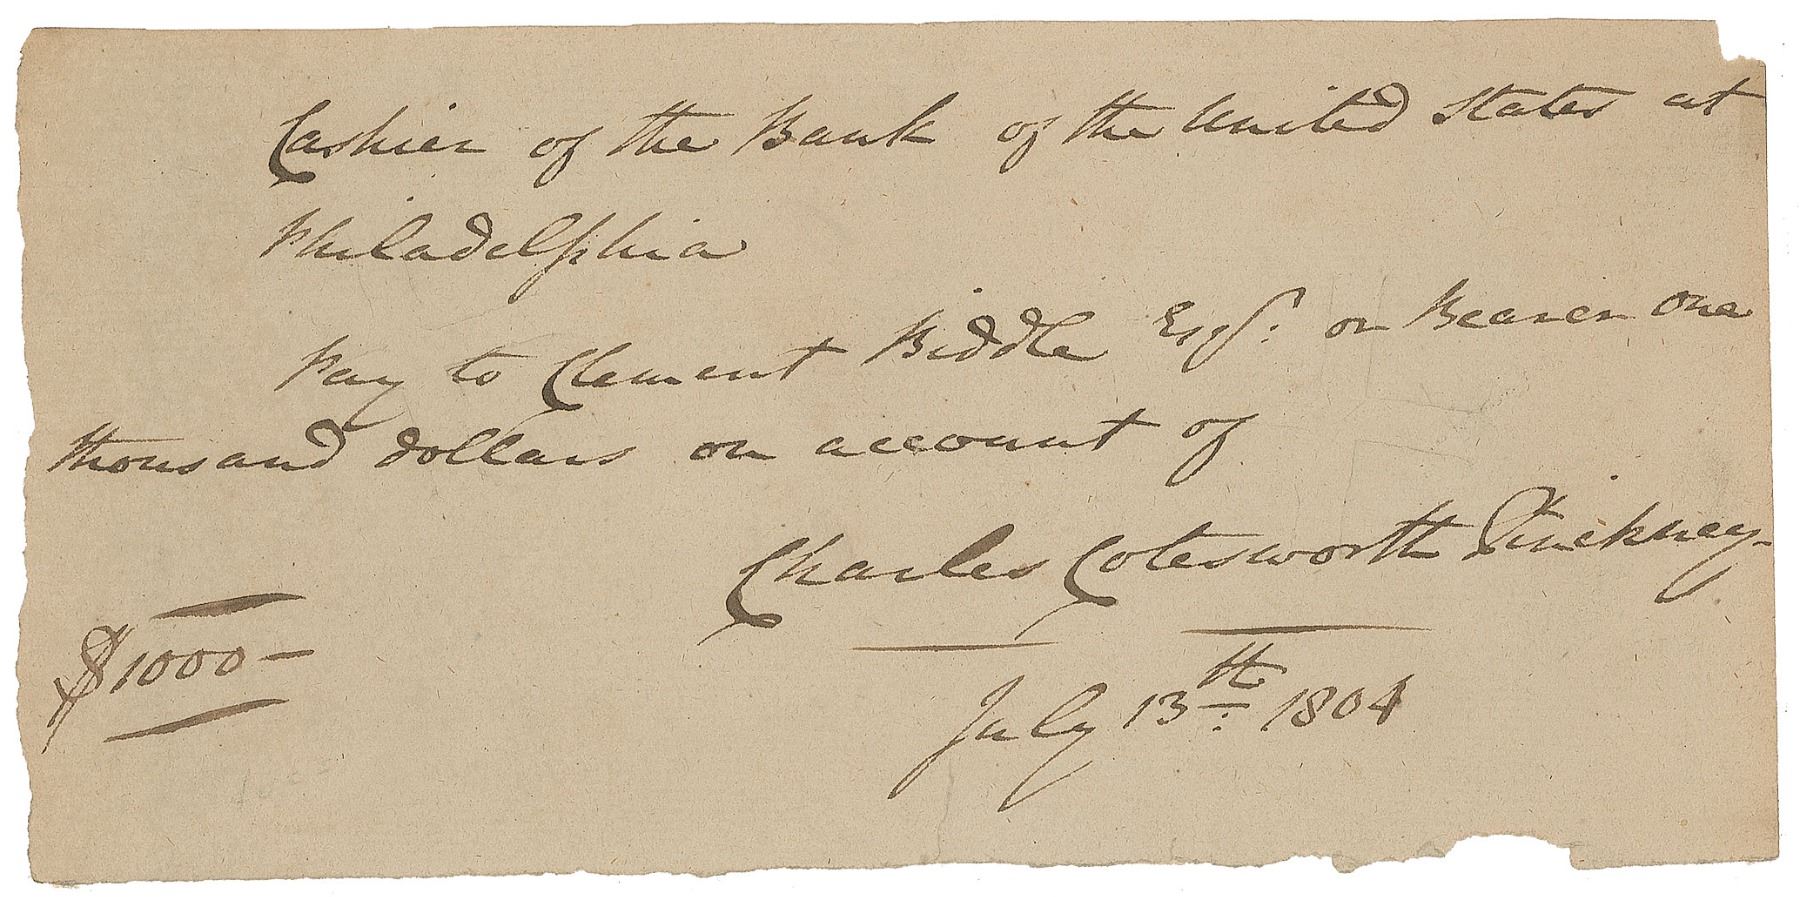 Cashier of the Bank of the United States at
Philadelphia
Pay to Clement Biddle Esqr. or Bearer one
thousand dollars on account of
Charles Cotesworth Pinckney
$1000-
July 13th. 1804